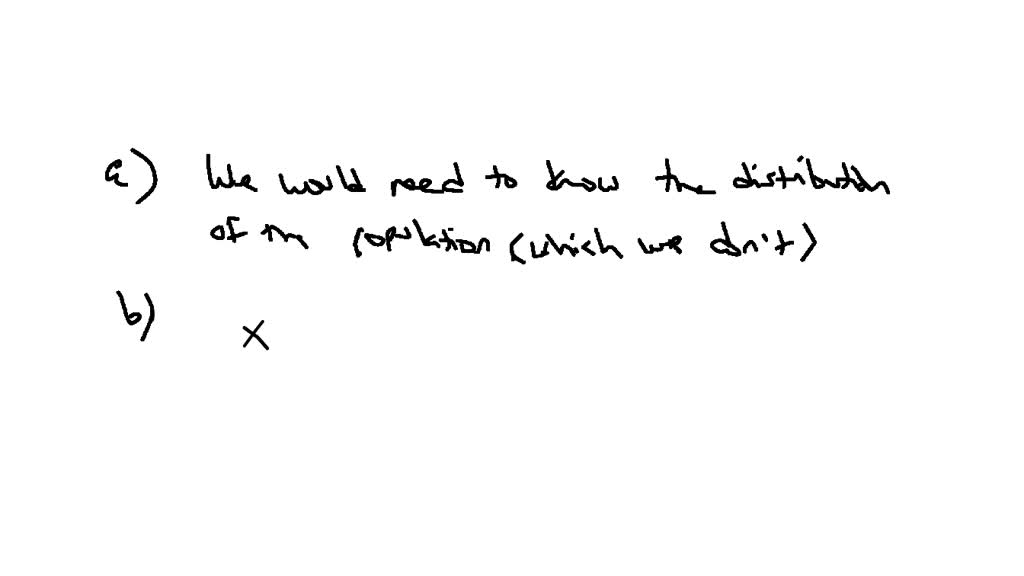 a) We would need to know the distribution
of the population (which we don't)
b) X